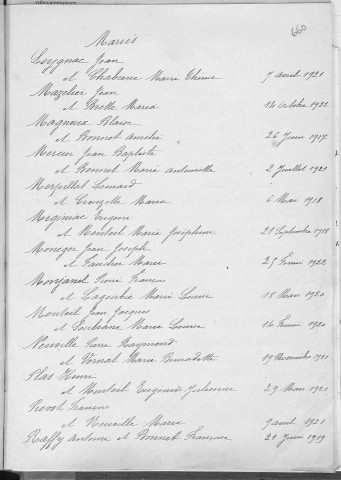 660
Mariés
Leyignac Jean
et Chabrerie Marie Thérèse 7 avril 1921
Mazelier Jean
et Brelle Maria 14 Octobre 1922
Magnoux Blaise
et Bonnet Amelie 26 Juin 1917
Mercier Jean Baptiste
et Bonnet Marie Antoinette 2 Juillet 1921
Merpillat Léonard
et Maria 6 Mai 1918
Meginiac Eugène
et Monteil Marie Joséphine 28 Septembre 1918
Moneger Jean Joseph
et Marie 25 Février 1922
Monjanel Pierre François
et Lagorsse Marie Louise 18 Mars 1920
Monteil Jean Jacques
et Marie Louise 14 Février 1920
Neuville Pierre Raymond
et Vornat Marie Bernadette 19 Novembre 1921
Plas Henri
et Monteil Eugénie Julienne 29 Mars 1921
Prevot François
et Neuville Marie 9 avril 1921
Raffy Antoine et Bonnet Françoise 21 Juin 1919